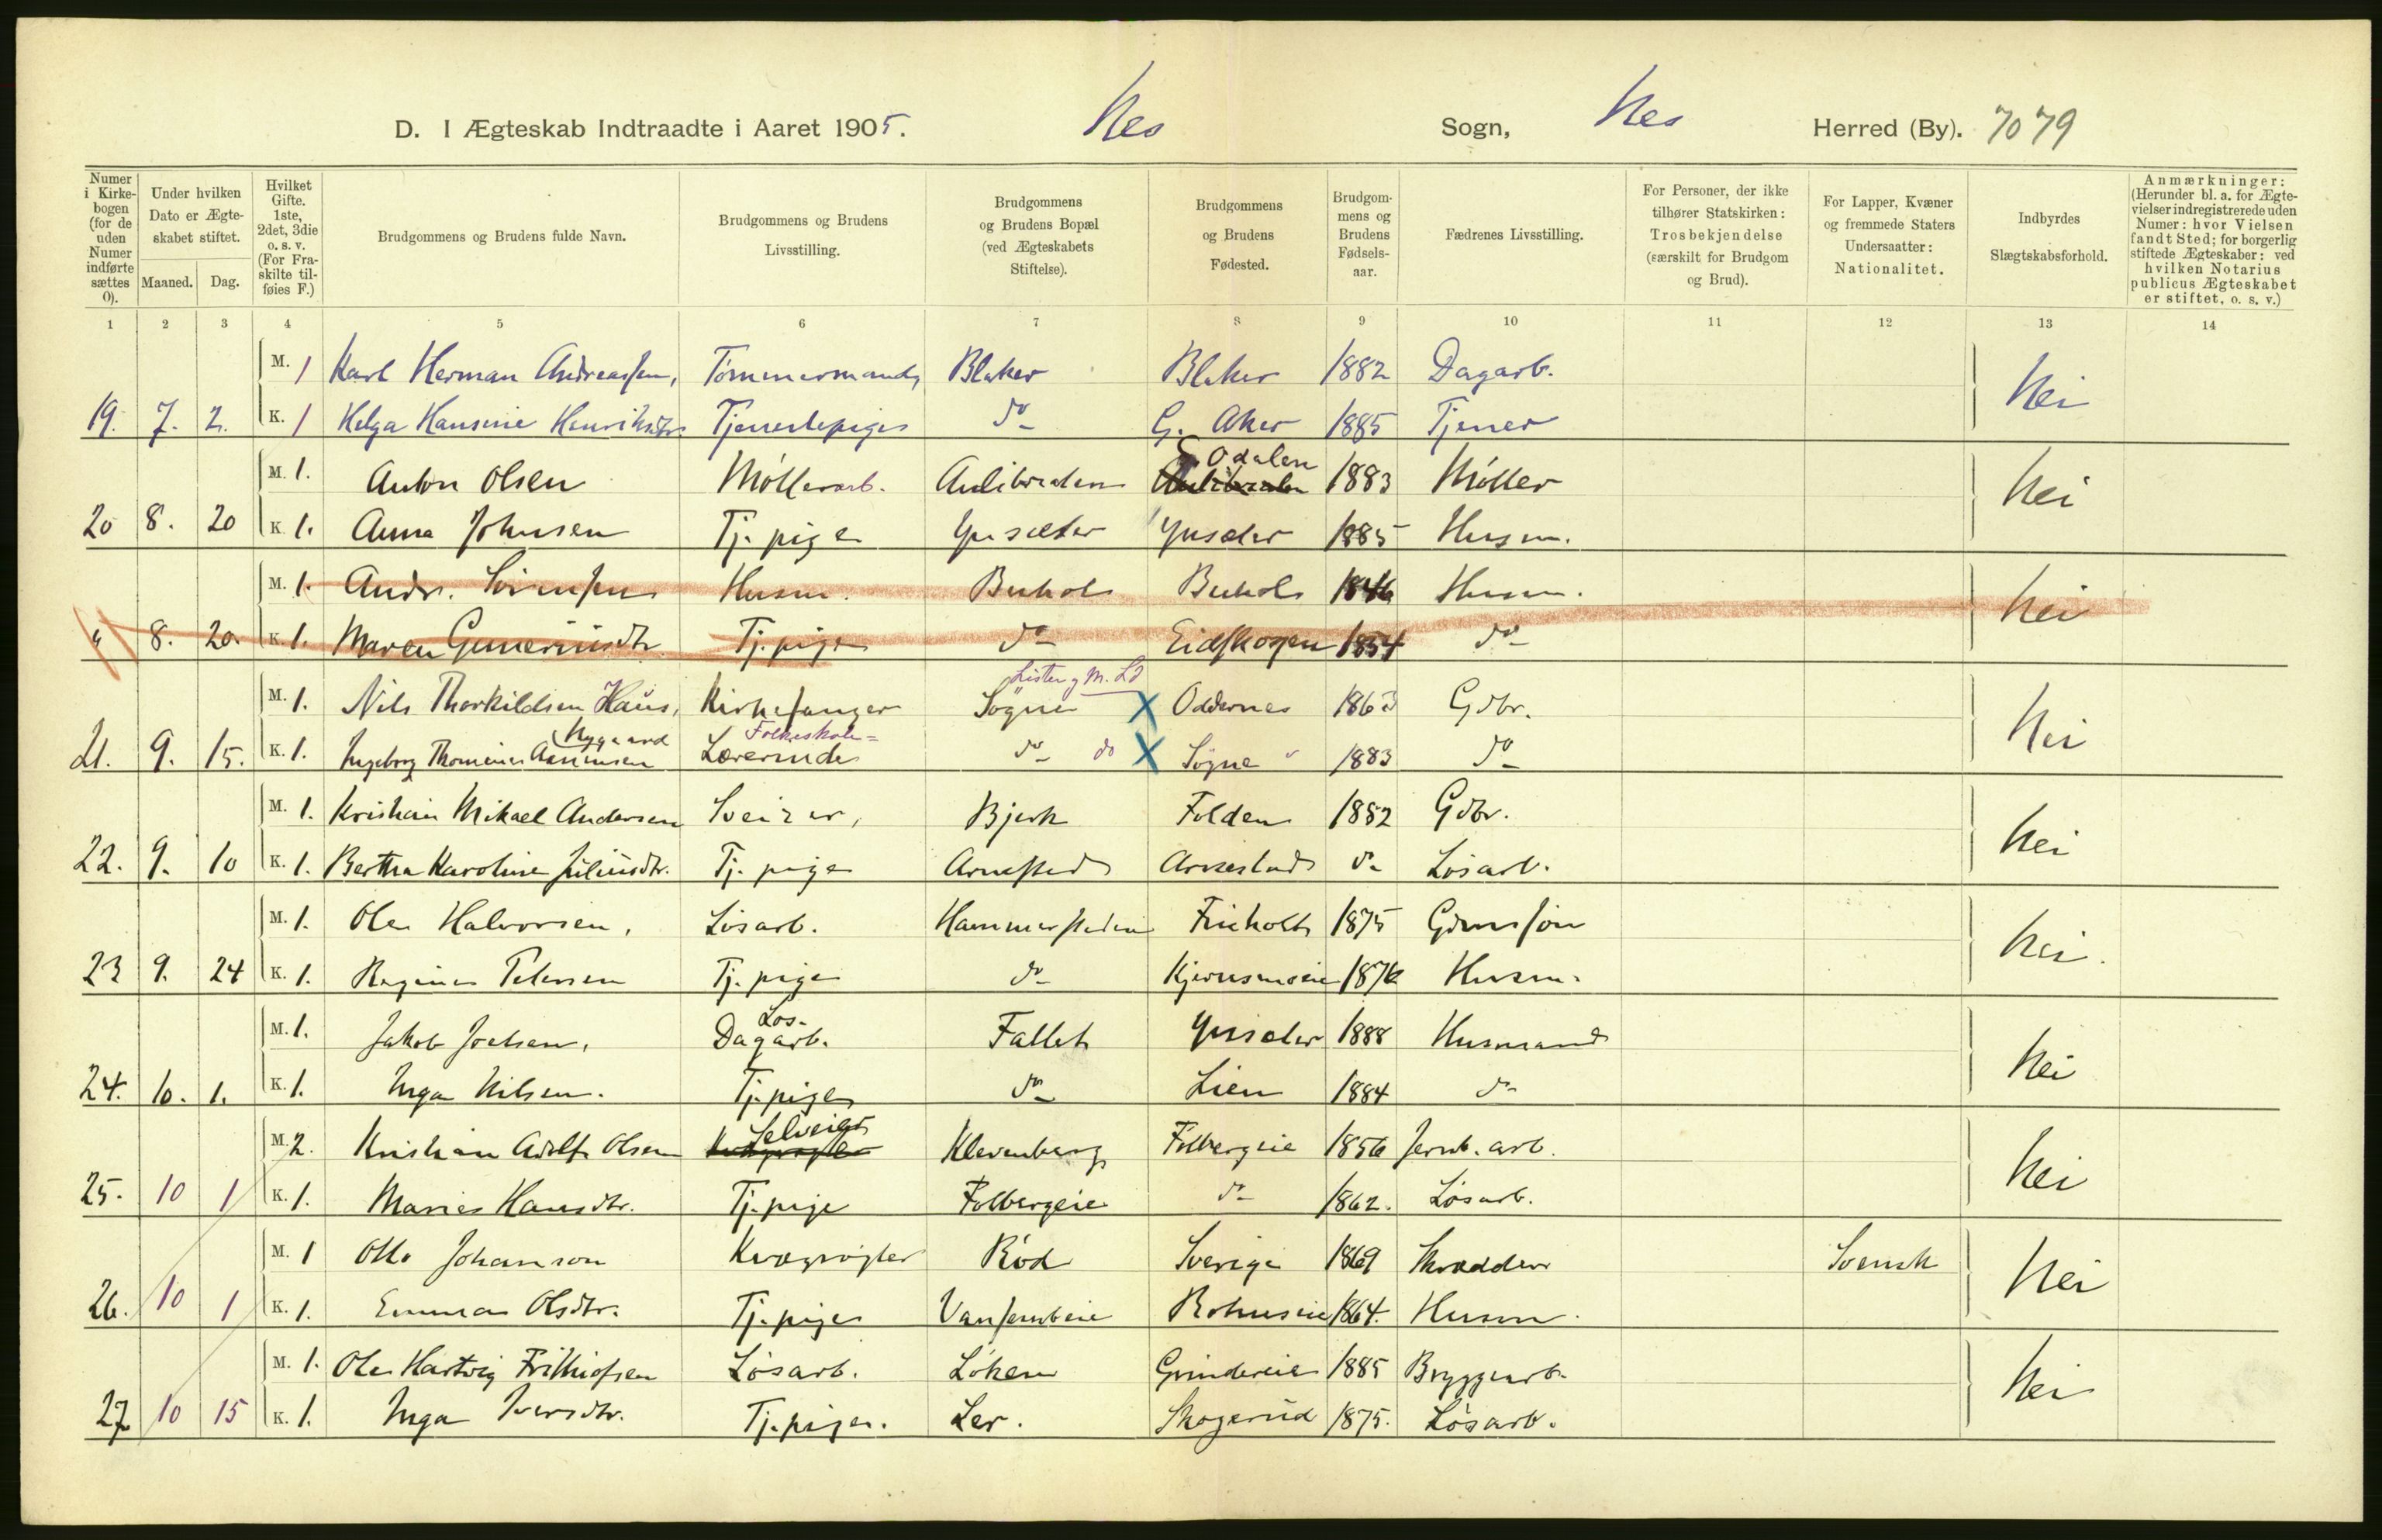 D. I Ægteskab Indtraadte i Aaret 1905. Nes Sogn, Nes Herred (By). 7079
Numer i Kirke-bogen (for de uden Numer indførte sættes 0).
Under hvilken Dato er Ægte-skabet stiftet.
Maaned. Dag.
Hvilket Gifte. 1ste, 2det, 3die o. s. v. (For Fra-skilte til-føies F.)
Brudgommens og Brudens fulde Navn.
Brudgommens og Brudens Livsstilling.
Brudgommens og Brudens Bopæl (ved Ægteskabets Stiftelse).
Brudgommens og Brudens Fødested.
Brudgom-mens og Brudens Fødsels-aar.
Fædrenes Livsstilling.
For Personer, der ikke tilhører Statskirken: Trosbekjendelse (særskilt for Brudgom og Brud).
For Lapper, Kvæner og fremmede Staters Undersaatter: Nationalitet.
Indbyrdes Slægtskabsforhold.
Anmærkninger: (Herunder bl. a. for Ægte-vielser indregistrerede uden Numer: hvor Vielsen fandt Sted; for borgerlig stiftede Ægteskaber: ved hvilken Notarius publicus Ægteskabet er stiftet, o. s. v.)
1 2 3 4 5 6 7 8 9 10 11 12 13 14
M. 1 Karl Herman Andreassen, Tømmermand, Blaker Blaker 1882 Dagarb. Nei
19. 7. 2. K. 1 Helga Hansine Henriksdtr. Tjenestepige do G. Aker 1885 Tjener
M. 1. Anton Olsen Møllerarb. Aulibraaten S. Odalen 1883 Møller Nei
20 8. 20 K. 1. Anna Johnsen Tj. pige Gusæter Gusæter 1885 Husm.
M. 1. Andr. Sörensen Husm. Buhol Buhol 1846 Husm. Nei
" 8. 20. K. 1. Maren Guneriusdtr Tj. pige do Eidskogen 1854 do
Lister og M. Ld
M. 1. Nils Thorkildsen Haus, Kirkesanger Søgne X Oddernes 1863 Gdbr. Nei
Nygaard Folkeskole=
21. 9. 15. K. 1. Ingeborg Thomine Asmunsen Lærerinde do do X Søgne 1883 do
M. 1. Kristian Mikael Andersen Sveizer, Bjerk Folden 1882 Gdbr. Nei
22. 9. 10 K. 1. Bertha Karoline Juliusdtr. Tj. pige Arnestad Arnestad do Løsarb.
M. 1. Ole Halvorsen, Løsarb. Hammerstadeie Frieholt 1875 Gdmssøn Nei.
23 9. 24 K. 1. Regine Petersen Tj. pige do Kjernsmoeie 1876 Husm.
Løs-
M. 1. Jakob Joelsen, Dagarb. Fallet Gusæter 1888 Husmand Nei
24. 10. 1. K. 1. Inga Nilsen. Tj. pige do Lien 1884 do
Selveier
M. 2. Kristian Adolf Olsen Klevenberg Folbergeie 1856 Jernb. arb. Nei
25. 10 1 K. 1. Marie Hansdtr. Tj. pige Folbergeie do 1862. Løsarb.
M. 1 Otto Johanson Kvægrøgter Rød Sverige 1869 Skrædder Svensk Nei
26. 10 1 K. 1. Emma Olsdtr. Tj. pige Vansembeie Rohuseie 1864. Husm.
M. 1. Ole Hartvig Frithiofsen Løsarb. Løken Grindereie 1885 Bryggearb. Nei
27 10 15 K. 1. Inga Iversdtr. Tj. pige. Ler. Skogerud 1875. Løsarb.